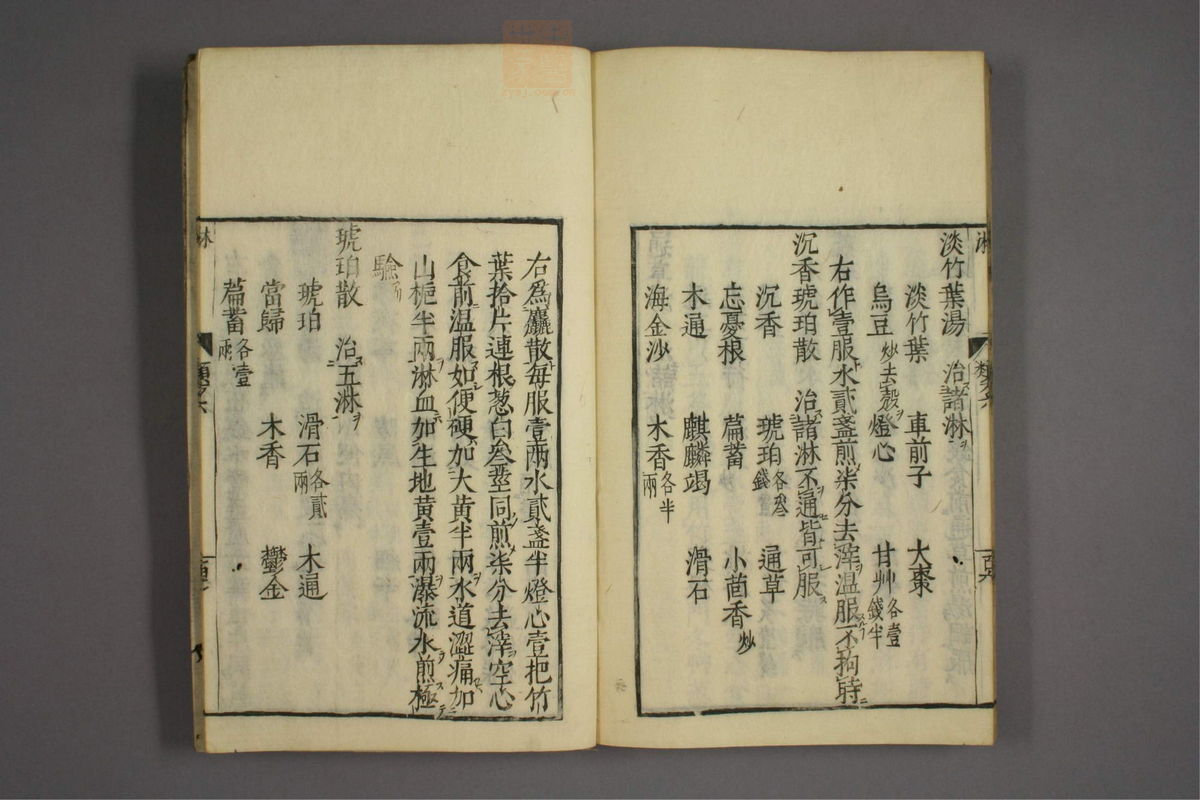 淡竹葉湯　治諸淋ヲ
淡竹葉　車前子　大棗
烏豆炒去殼ヲ　燈心　甘艸各壹錢半
右作壹服水貳盞煎柒分去滓温服不拘時ニ
沉香琥珀散　治諸淋不通皆可服ス
沉香　琥珀各叄錢　通草
忘憂根　萹蓄　小茴香炒
木通　麒麟竭　滑石
海金沙　木香各半兩
右為麤散毎服壹兩水貳盞半燈心壹把竹
葉拾片連根葱白叄莖同煎柒分去滓空心
食前温服如便硬加大黃半兩水道澀痛加
山梔半兩淋血加生地黃壹兩瀑流水煎極
驗
琥珀散　治五淋ヲ
琥珀　滑石各貳兩　木通
當歸　木香　鬱金
萹蓄各壹兩